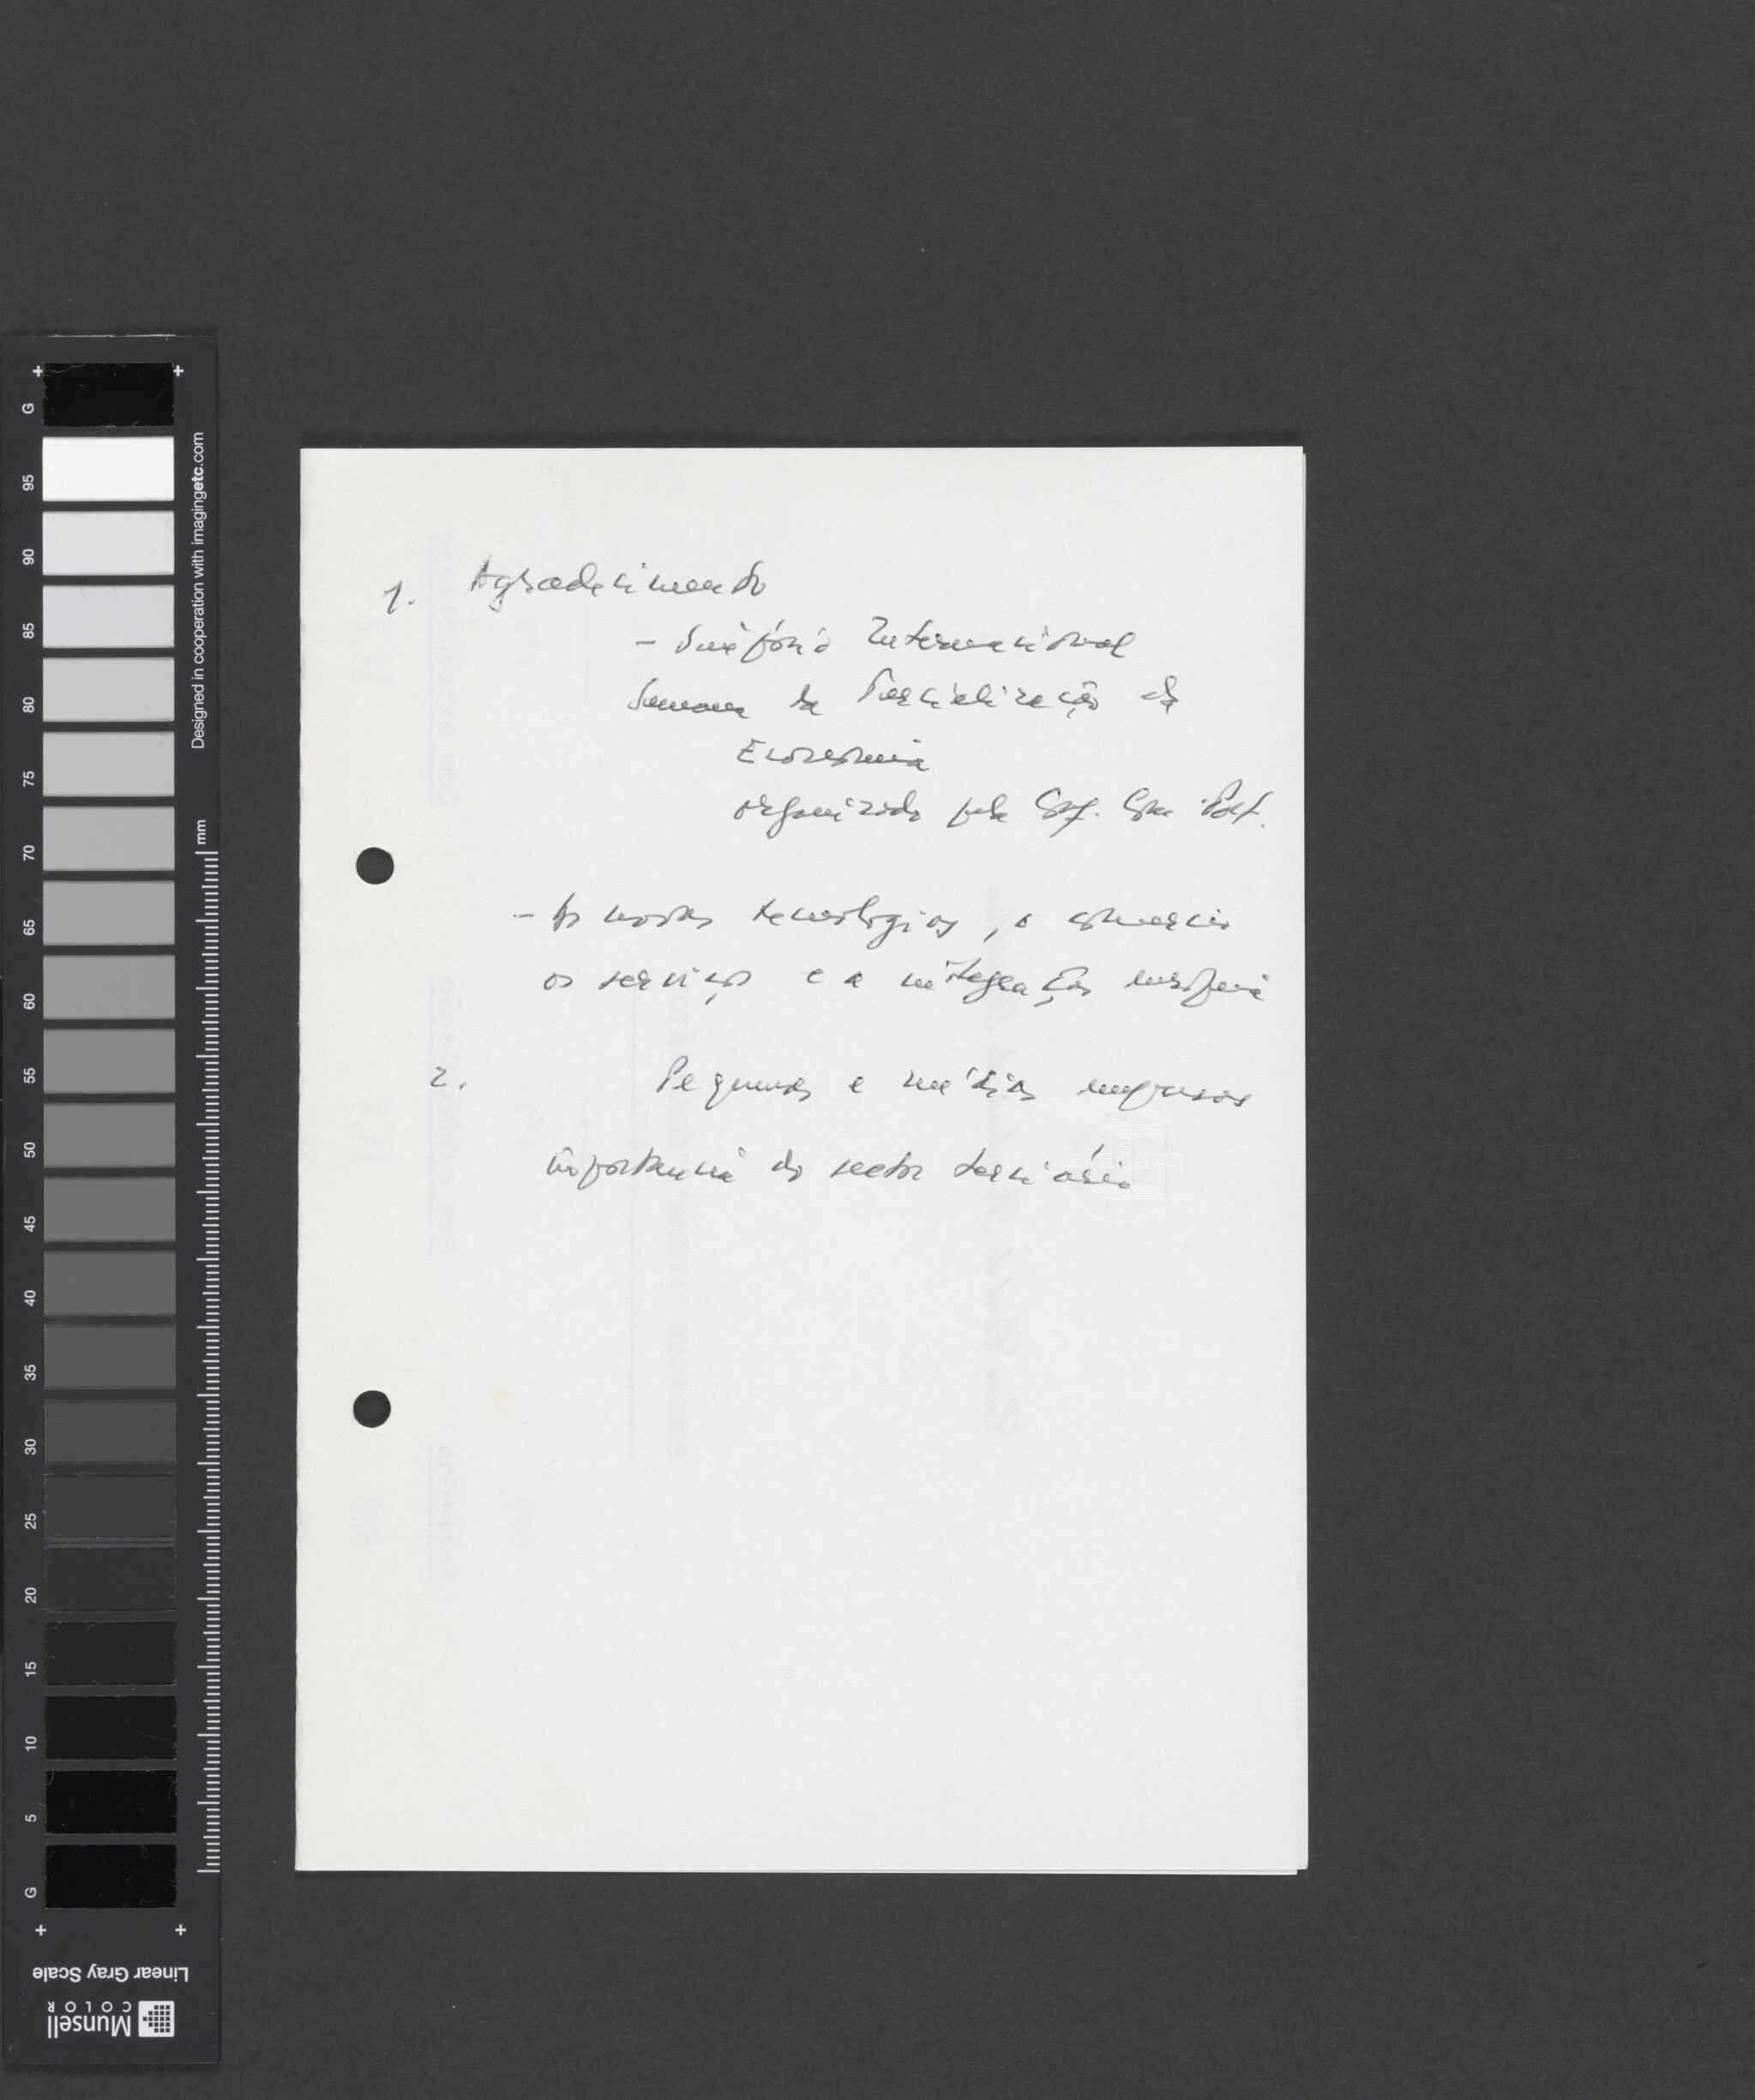 1. Agradecimento
- Simpósio Internacional
Semana da Tercialização da
Economia
organizado pela Conf. Com. Port.
- As novas tecnologias, o comercio
os serviços e a integração europeia
2. Pequenas e médias empresas
importancia do sector terciário
G
95
90
85
80
75
70
65
60
55
50
45
40
35
30
25
20
15
10
5
G
Designed in cooperation with imagingetc.com
mm
Linear Gray Scale
Munsell
COLOR